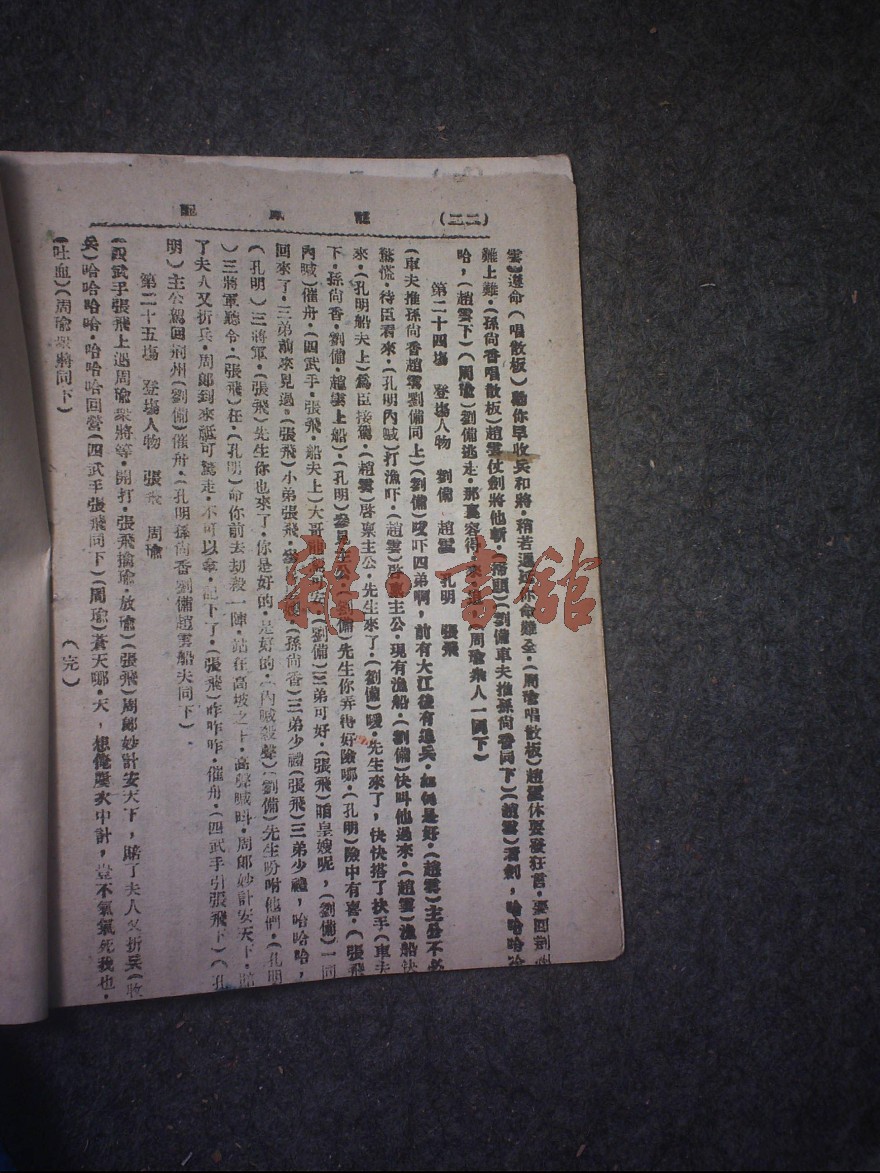 (二二)
龍鳳配
雲)遵命(唱散板)勸你早收兵和將·稍若遲延你命難全·(周瑜唱散板)趙雲休要發狂言·要回到
難上難·(孫尙香唱散板)趙雲仗劍將他斬·(掃頭)(劉備車夫推孫尙香同下)(趙雲)看劍,哈哈哈
哈,(趙雲下)(周瑜)劉備逃走·那裏容得·來·追·(周瑜衆人一同下)
第二十四塲 登塲人物 劉備 趙雲 孔明 張飛
(車夫推孫尙香趙雲劉備同上)(劉備)哎吓四弟啊,前有大江後有追兵·如何是好·(趙雲)主公不必
驚慌·待臣看來·(孔明內喊)打漁吓·(趙雲)啓稟主公·現有漁船·(劉備)快叫他過來·(趙雲)漁船快
來·(孔明船夫上)爲臣接駕·(趙雲)啓稟主公·先生來了·(劉備)噯·先生來了,快快搭了扶手(車夫
下·孫尙香·劉備·趙雲上船)(孔明)參見主公·(劉備)先生你弄得好險哪·(孔明)險中有喜·(張飛
內喊)催舟·(四武手·張飛·船夫上)大哥 可安(劉備)三弟可好·(張飛)咱皇嫂呢,(劉備)一同
回來了·三弟前來見過·(張飛)小弟張飛· (孫尙香)三弟少禮(張飛)三弟少禮,哈哈哈,
(孔明)三將軍·(張飛)先生你也來了·你是好的·是好的·(內喊殺聲)(劉備)先生吩咐他們·(孔明
)三將軍聽令·(張飛)在·(孔明)命你前去劫殺一陣·站在高坡之上·高聲喊叫·周郞妙計安天下·賠
了夫人又折兵·周郞到來祗可驚走·不可以拿·記下了·(張飛)咋咋咋·催舟·(四武手引張飛下)(孔
明)主公駕回荊州(劉備)催舟·(孔明孫尙香劉備趙雲船夫同下)·
第二十五塲 登塲人物 張飛 周瑜
(四武手張飛上遇周瑜衆將等·開打·張飛擒瑜·放瑜)(張飛)周郞妙計安天下,賠了夫人又折兵(收
兵)哈哈哈哈·哈哈哈回營(四武手張飛同下)(周瑜)蒼天哪·天,想俺屢次中計,豈不氣氣死我也·
(吐血)(周瑜衆將同下)
(完)
雜·書館